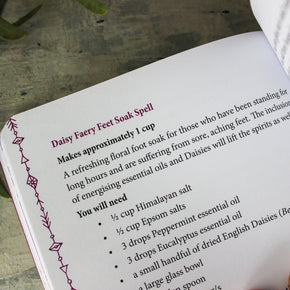 Daisy Faery Feet Soak Spell
Makes approximately 1 cup
A refreshing floral foot soak for those who have been standing for
long hours and are suffering from sore, aching feet. The inclusion
of energising essential oils and Daisies will lift the spirits as wel
You will need
• ½ cup Himalayan salt
• ½ cup Epsom salts
• 3 drops Peppermint essential oil
• 3 drops Eucalyptus essential oil
• a small handful of dried English Daisies (Be
a large glass bowl
spoon